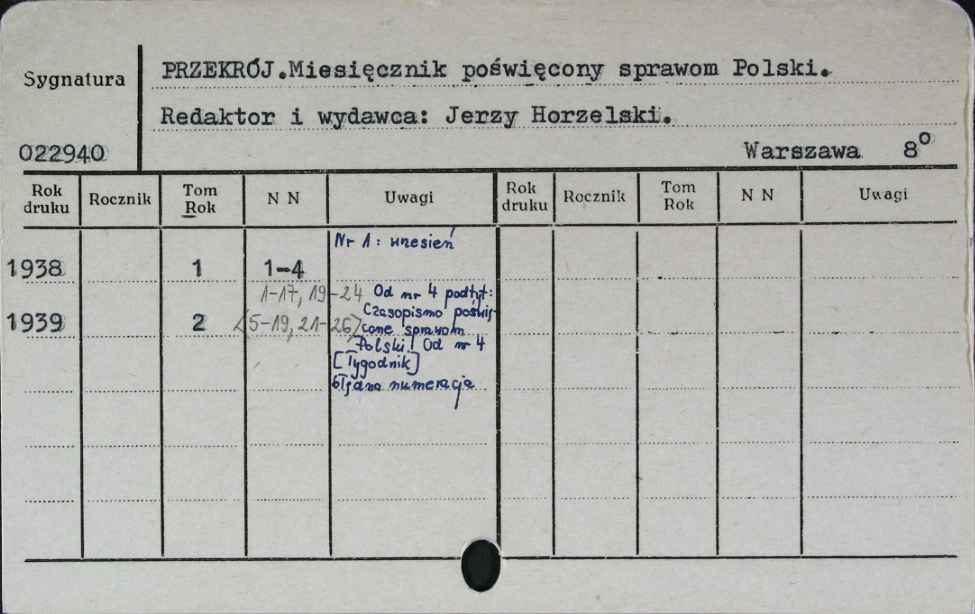 Sygnatura
PRZEKRÓJ.Miesięcznik poświęcony sprawom Polski.
Redaktor i wydawca: Jerzy Horzelski.
022940
Warszawa 8°
Rok druku Rocznik Tom Rok N N Uwagi Rok druku Rocznik Tom Rok N N Uwagi
Nr 1: wrzesień
1938 1 1-4
1-17, 19-24 Od nr 4 podtyt:
Czasopismo poświę
1939 2 <(5-19, 21-26) cone sprawom
Polski. Od nr 4
[Tygodnik]
błędna numeracja